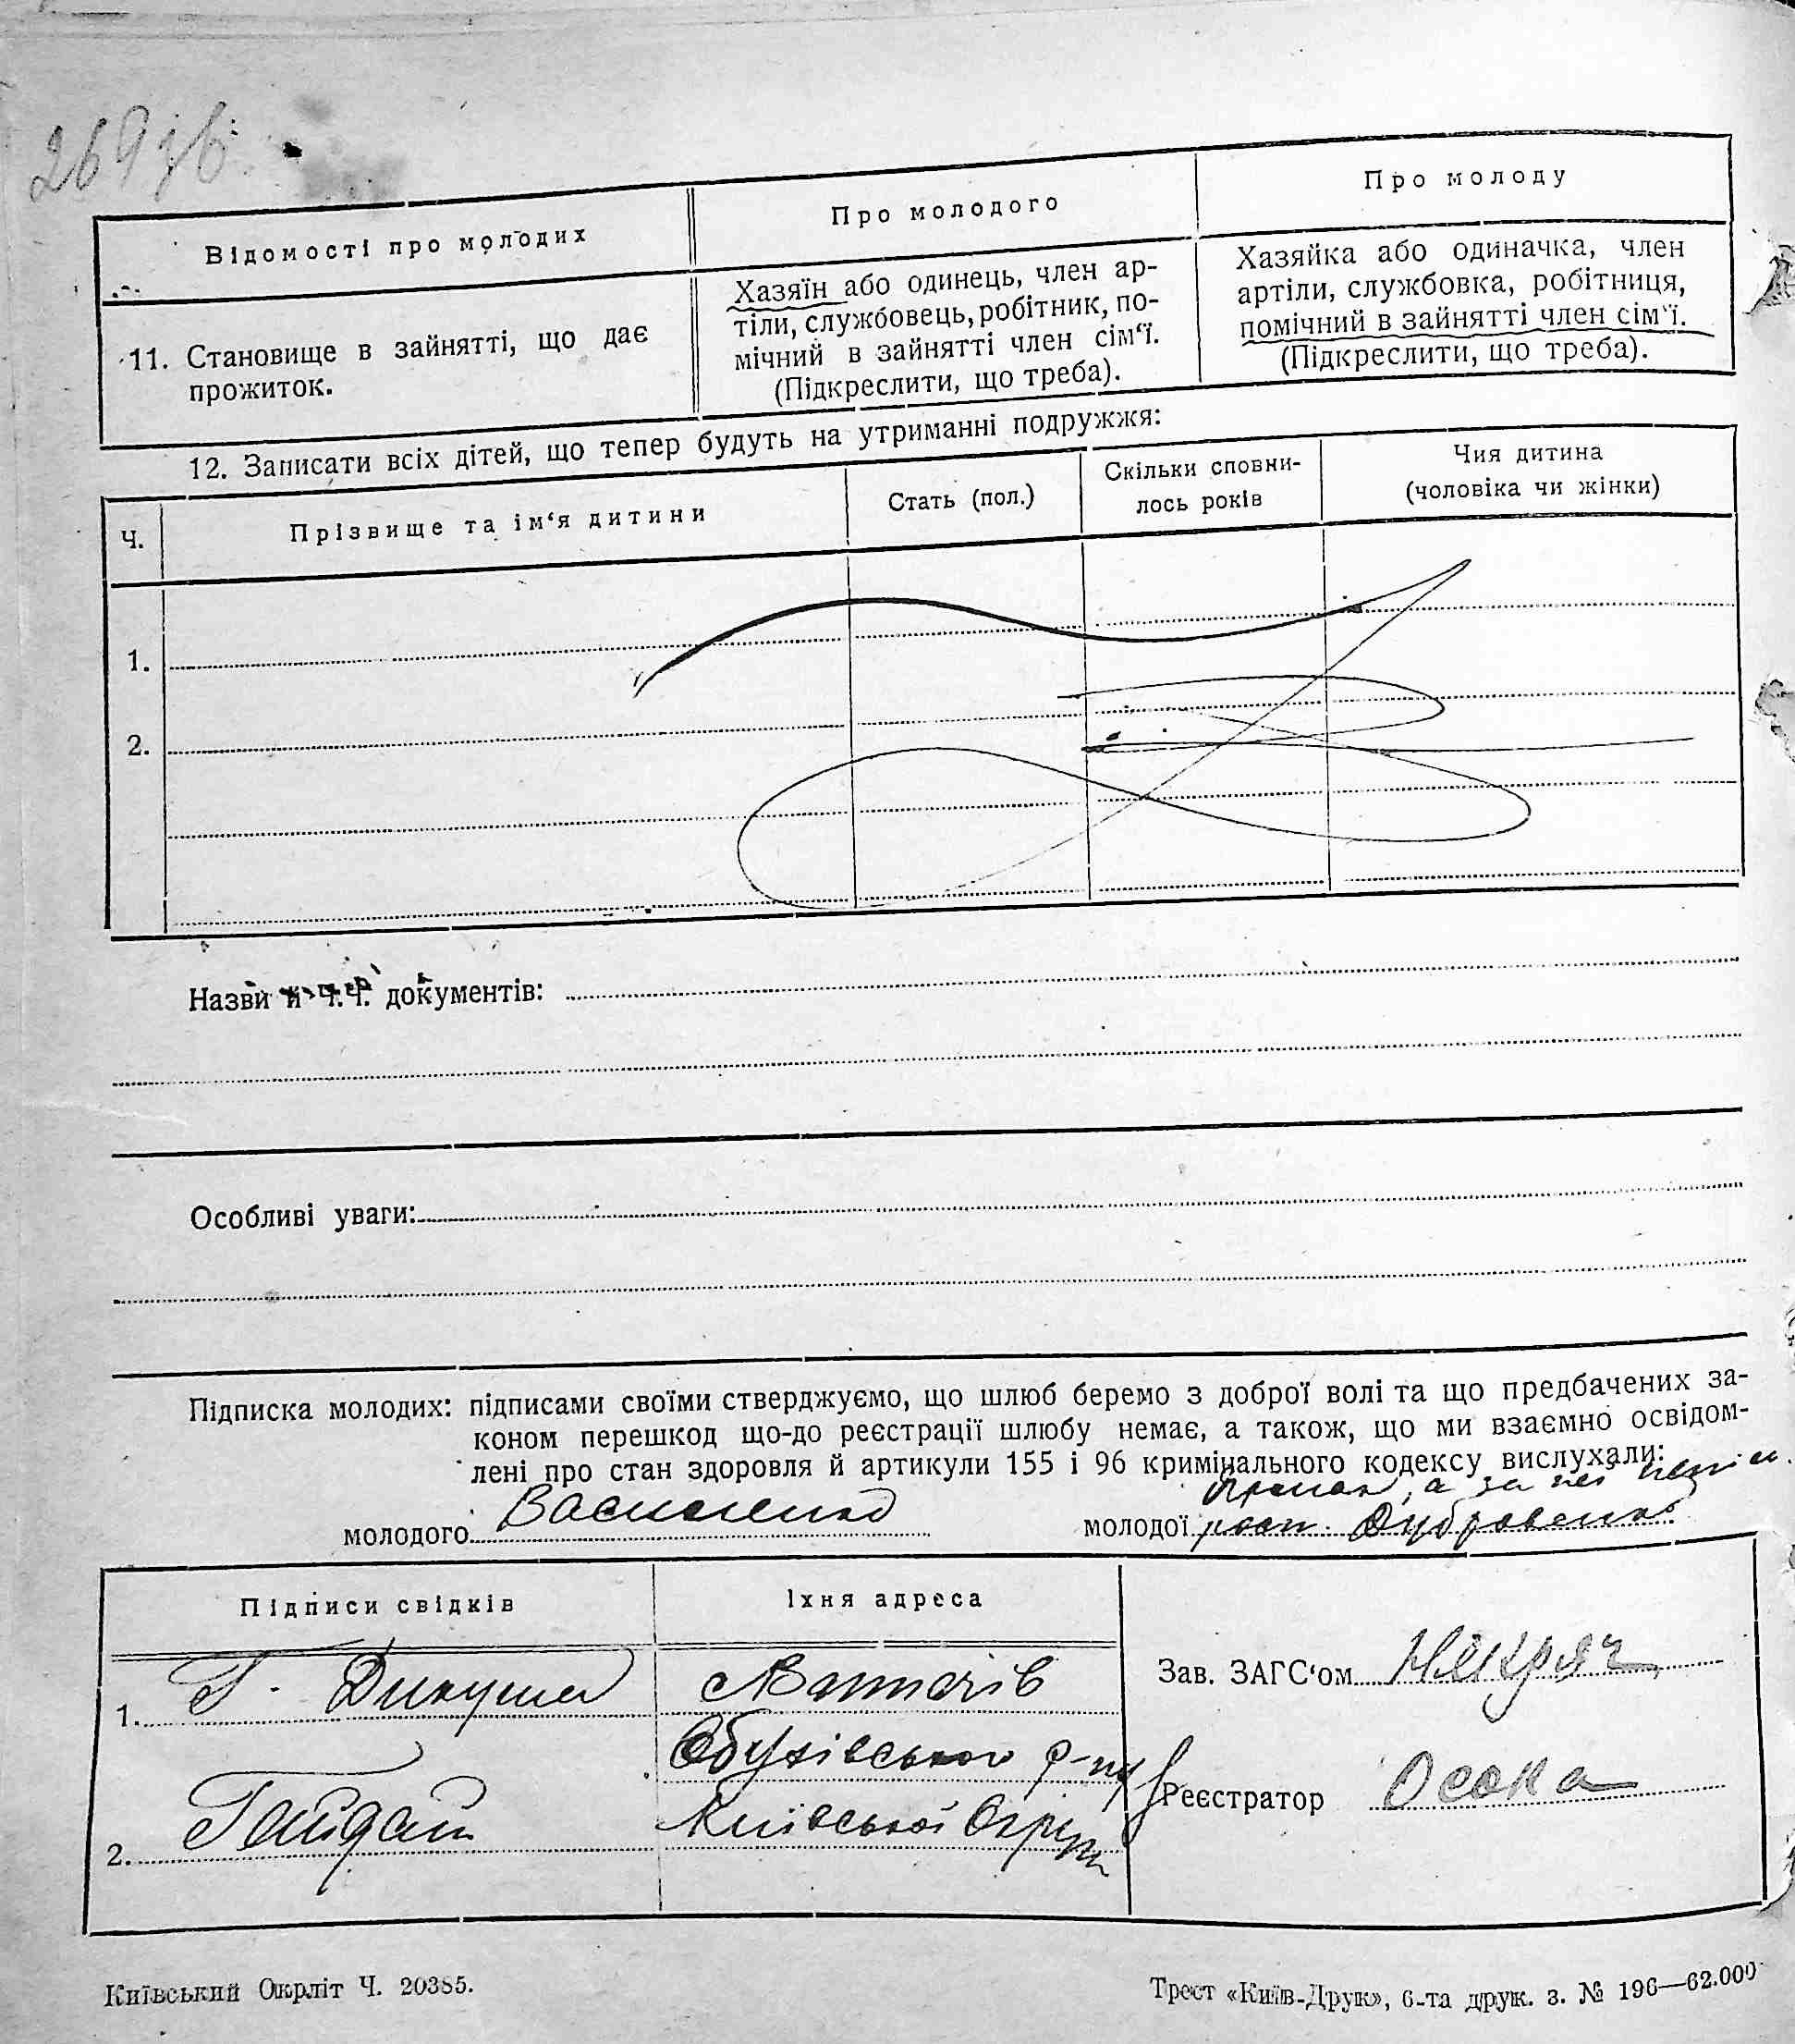 269 зв.
Відомості про молодих
Про молодого
Про молоду
11. Становище в зайнятті, що дає
прожиток.
Хазяїн або одинець, член ар-
тіли, службовець, робітник, по-
мічний в зайнятті член сім‘ї.
(Підкреслити, що треба).
Хазяйка або одиначка, член
артіли, службовка, робітниця,
помічний в зайнятті член сім‘ї.
(Підкреслити, що треба).
12. Записати всіх дітей, що тепер будуть на утриманні подружжя:
Ч.
Прізвище та ім‘я дитини
Стать (пол.)
Скільки сповни-
лось років
Чия дитина
(чоловіка чи жінки)
1.
2.
Назви й ч.ч. документів:
Особливі уваги:
Підписка молодих: підписами своїми стверджуємо, що шлюб беремо з доброї волі та що предбачених за-
коном перешкод що-до реєстрації шлюбу немає, а також, що ми взаємно освідом-
лені про стан здоровля й артикули 155 і 96 кримінального кодексу вислухали:
а за неї
молодого Василенко
молодої Дубровенко
Підписи свідків
Їхня адреса
1. Г. Дикуша
Обухівського р-ну
2. Гайдай
Київської Округи
Зав. ЗАГС‘ом Некряч
Реєстратор Осока
Київський Окрліт Ч. 20385.
Трест «Київ-Друк», 6-та друк. з. № 196—62.000